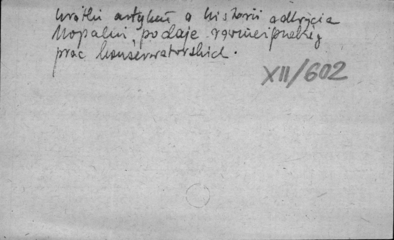 krótki artykuł o historii odkrycia
kopalni, podaje również
prac konserwatorskich.
XII/602